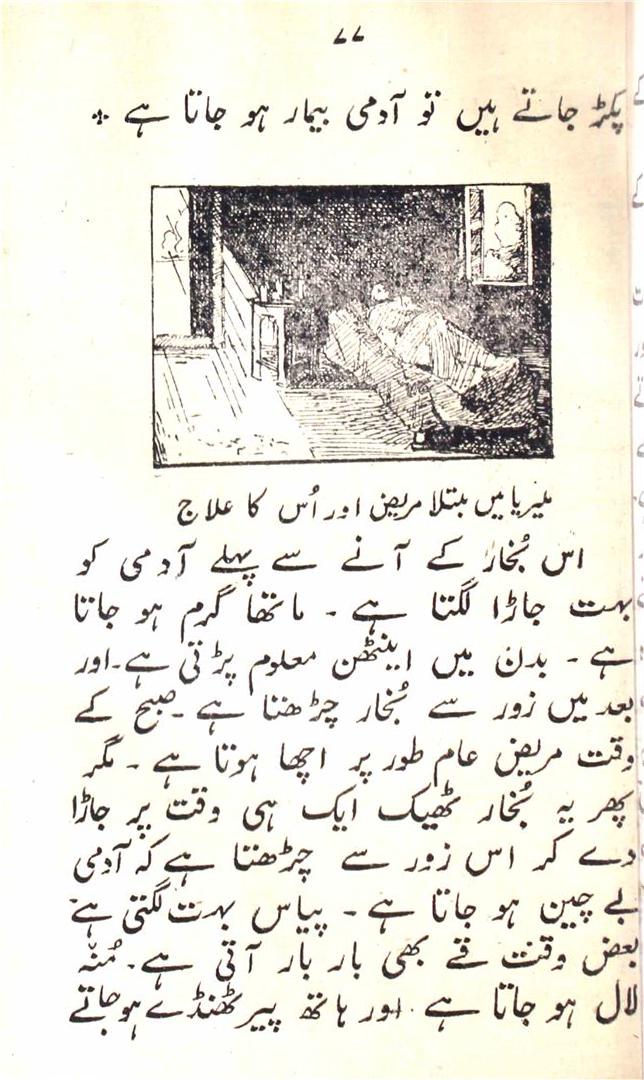 ۷۷
پکڑ جاتے ہیں تو آدمی بیمار ہو جاتا ہے ٭
ملیریا میں مبتلا مریض اور اُس کا علاج
اس بُخار کے آنے سے پہلے آدمی کو
بہت جاڑا لگتا ہے ۔ ماتھا گرم ہو جاتا
ہے ۔ بدن میں اینٹھن معلوم پڑتی ہے ۔ اور
بعد میں زور سے بُخار چڑھتا ہے ۔ صبح کے
وقت مریض عام طور پر اچھا ہوتا ہے ۔ مگر
پھر یہ بُخار ٹھیک ایک ہی وقت پر جاڑا
دے کر اس زور سے چڑھتا ہے کہ آدمی
بے چین ہو جاتا ہے ۔ پیاس بہت لگتی ہے
بعض وقت قے بھی بار بار آتی ہے ۔ مُنہ
لال ہو جاتا ہے اور ہاتھ پیر ٹھنڈے ہو جاتے